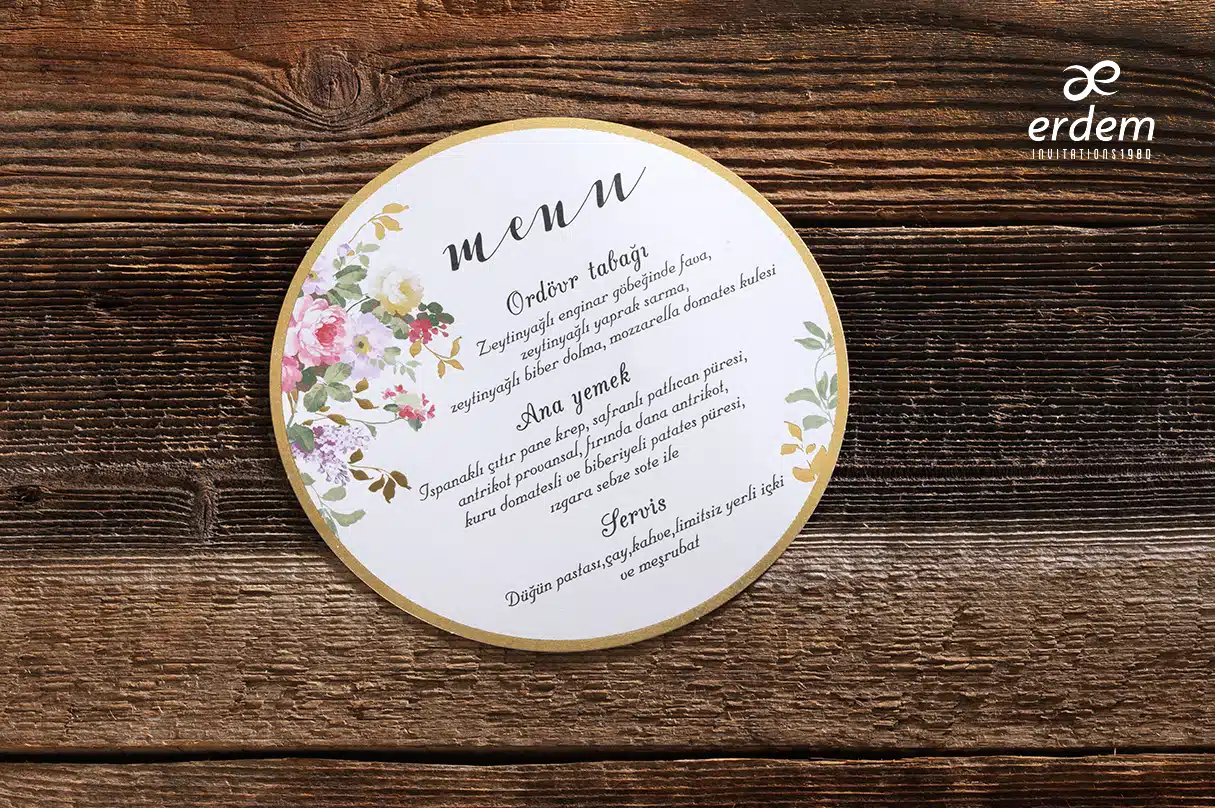 æ
erdem
INVITATIONS1980
menu
Ordövr tabağı
Zeytinyağlı enginar göbeğinde fava,
zeytinyağlı yaprak sarma,
zeytinyağlı biber dolma, mozzarella domates kulesi
Ana yemek
Ispanaklı çıtır pane krep, safranlı patlıcan püresi,
antrikot provansal, fırında dana antrikot,
kuru domatesli ve biberiyeli patates püresi,
ızgara sebze sote ile
Servis
Düğün pastası,çay,kahve,limitsiz yerli içki
ve meşrubat